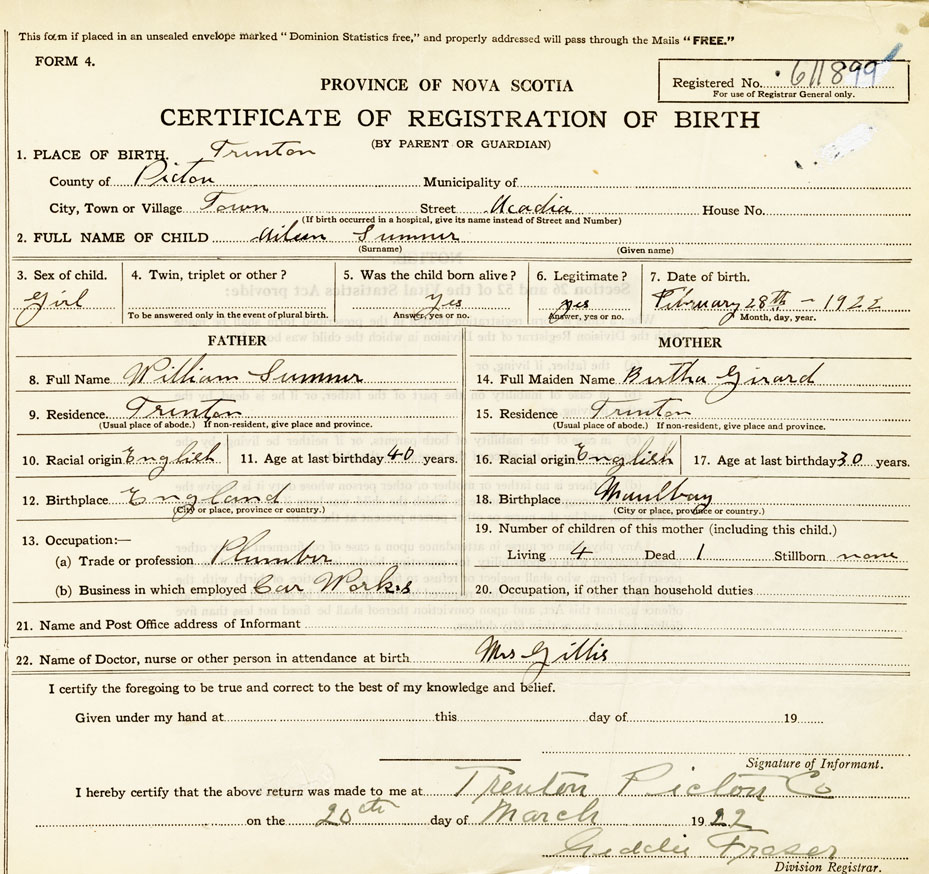 This form if placed in an unsealed envelope marked "Dominion Statistics free," and properly addressed will pass through the Mails "FREE."
FORM 4.
Registered No. 611899
For use of Registrar General only.
PROVINCE OF NOVA SCOTIA
CERTIFICATE OF REGISTRATION OF BIRTH
(BY PARENT OR GUARDIAN)
1. PLACE OF BIRTH. Trenton
County of Picton Municipality of
City, Town or Village Town Street Acadia House No.
(If birth occurred in a hospital, give its name instead of Street and Number)
2. FULL NAME OF CHILD Aileen Sumner
(Surname) (Given name)
3. Sex of child. 4. Twin, triplet or other? 5. Was the child born alive? 6. Legitimate? 7. Date of birth.
Girl Yes yes February 28th - 1922
To be answered only in the event of plural birth. Answer, yes or no. Answer, yes or no. Month, day, year.
FATHER MOTHER
8. Full Name William Sumner 14. Full Maiden Name Bertha Girard
9. Residence Trenton 15. Residence Trenton
(Usual place of abode.) If non-resident, give place and province. (Usual place of abode.) If non-resident, give place and province.
10. Racial origin English 11. Age at last birthday 40 years. 16. Racial origin English 17. Age at last birthday 30 years.
12. Birthplace England 18. Birthplace
(City or place, province or country.) (City or place, province or country.)
13. Occupation:— 19. Number of children of this mother (including this child.)
(a) Trade or profession Plumber Living 4 Dead 1 Stillborn none
(b) Business in which employed Car Works 20. Occupation, if other than household duties
21. Name and Post Office address of Informant
22. Name of Doctor, nurse or other person in attendance at birth Mrs Gillis
I certify the foregoing to be true and correct to the best of my knowledge and belief.
Given under my hand at this day of 19
Signature of Informant.
I hereby certify that the above return was made to me at Trenton Picton Co
on the 20th day of March 1922
Fraser
Division Registrar.